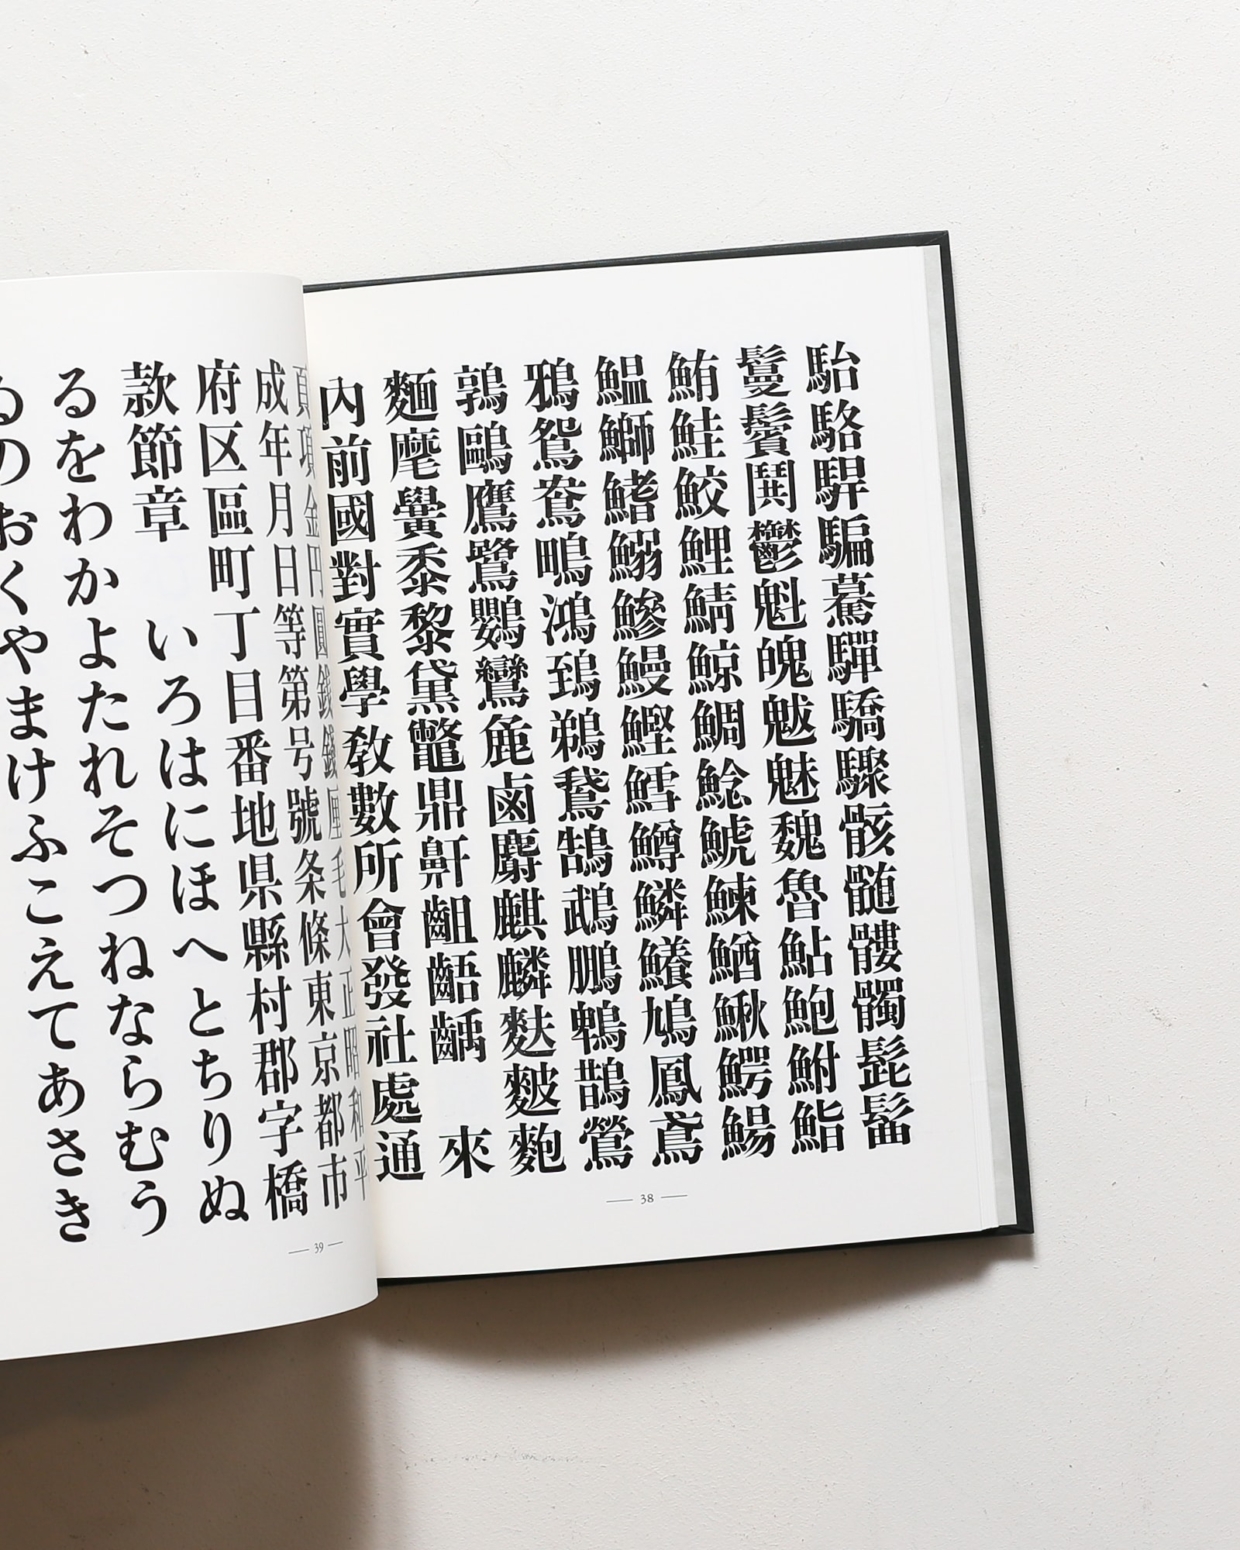 駘駱駻騙驀驒驕驟骸髄髏髑髭髷
鬘鬢鬨鬱魁魄魃魅魏魯鮎鮑鮒鮨
鮪鮭鮫鯉鯖鯨鯛鯰鯱鰊鰌鰍鰐鰑
鰮鰤鰭鰯鰺鰻鰹鱈鱒鱗鱶鳩鳳鳶
鴉鴛鴦鴫鴻鵄鵜鵞鵠鵡鵬鵯鵲鶯
鶉鷗鷹鷺鸚鸞麁鹵麝麒麟麩麭
麵麾黌黍黎黛鼈鼎鼾齟齬齲 來
內前國對實學敎數所會發社處通
38
頁項金円圓銭錢厘毛大正昭和平
成年月日等第号號条條東京都市
府区區町丁目番地県縣村郡字橋
款節章 いろはにほへとちりぬ
るをわかよたれそつねならむう
ゐのおくやまけふこえてあさき
39